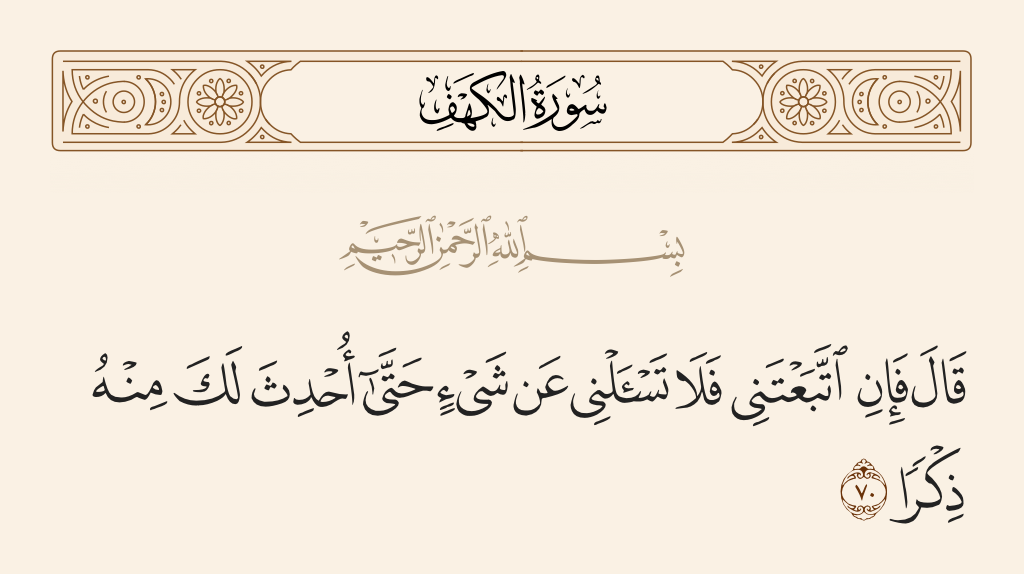 سُورَةُ الكَهْفِ
بِسْمِ ٱللَّهِ ٱلرَّحْمَٰنِ ٱلرَّحِيمِ
قَالَ فَإِنِ ٱتَّبَعْتَنِى فَلَا تَسْـَٔلْنِى عَن شَىْءٍ حَتَّىٰٓ أُحْدِثَ لَكَ مِنْهُ
ذِكْرًا ٧٠